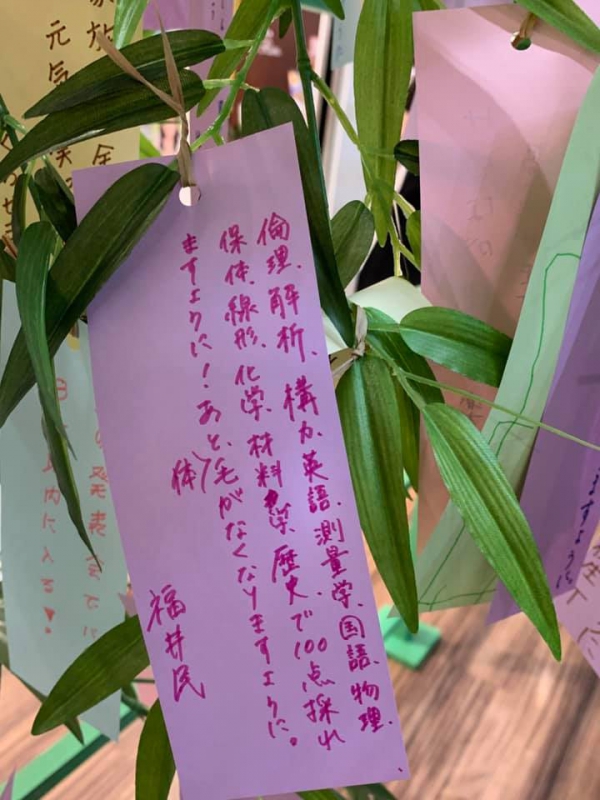 ますように
倫理、解析、構力、英語、測量学、国語、物理、
保体、線形、化学、材料学、歴史で100点採れ
ますように!あと、体毛がなくなりますように。
福井民
族
元気
の発表会で
以内に入る